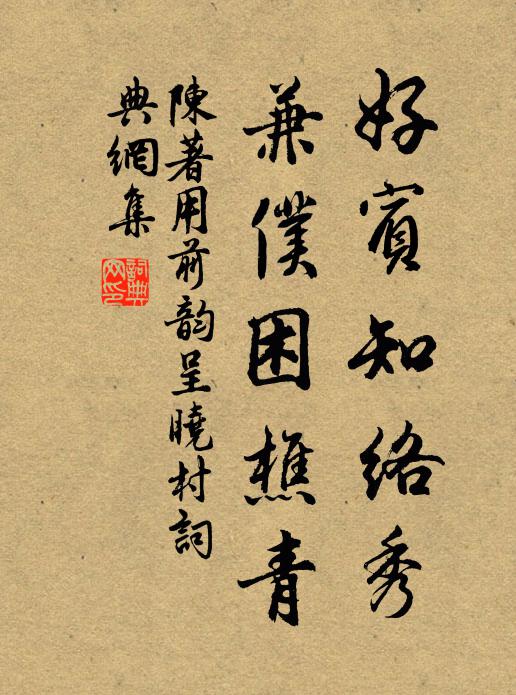 好賓知絡秀
兼僕困樵青
陳著用前韵呈曉村詞
典網集
詞典
网印